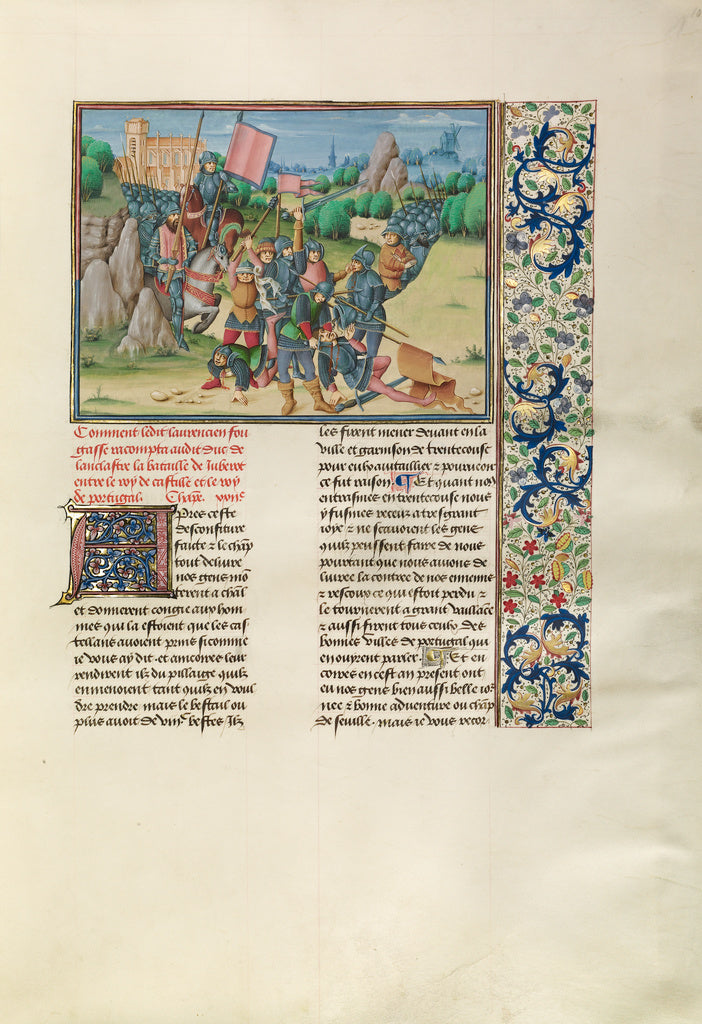 Comment ledit laurencien fou
gasse racompta audit duc de
lanclastre la bataille de Juberot
entre le roy de castille et le roy
de portugal. Chapr. xvne
Apres ceste
desconfiture
faicte ⁊ le chāp
tout deliure
nos gens mō
terent a chāl
et donnerent congie aux hom
mes qui la estoient que les cas
tellans auoient prins si comme
ie vous ay dit. et ancoires leur
rendirent ilz du pillaige quilz
en menoient tant quilz en voul
dre prendre mais le bestail ou
plus auoit de viijc bestes ilz
les firent mener deuant en la
ville et garnison de trentcouse
pour eulx auitaillier ⁊ pourueoir
ce fut raison. Et quant nos
entrasmes en trentcouse nous
y fusmes receuz a tresgrant
ioye ⁊ ne scauoient les gens
quilz peussent faire de nous
pourtant que nous auions de
liuree la contree de nos ennemis
⁊ rescoux ce qui estoit perdu ⁊
le tournerent a grant vaillāce
⁊ aussi firent tous ceulx des
bonnes villes de portugal qui
en ouyrent parler. Et en
cores en cest an present ont
eu nos gens bien aussi belle ior
nee ⁊ bonne aduenture ou chāp
de seuille. mais ie vous recor